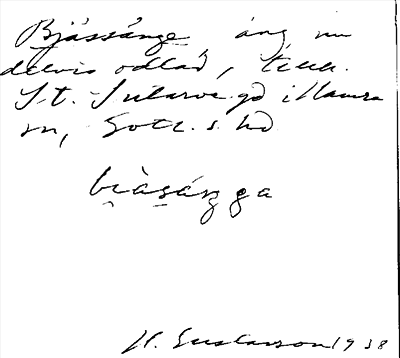 Bjässänge, äng nu
delvis odlad, till
St. Sularve gd i Hamra
sn, Gotl. s. hd
biàsáṉga
H. Gustavson 1938